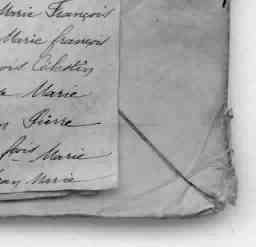 Marie François
Marie françois
Célestin
Marie
Pierre
fois Marie
Marie